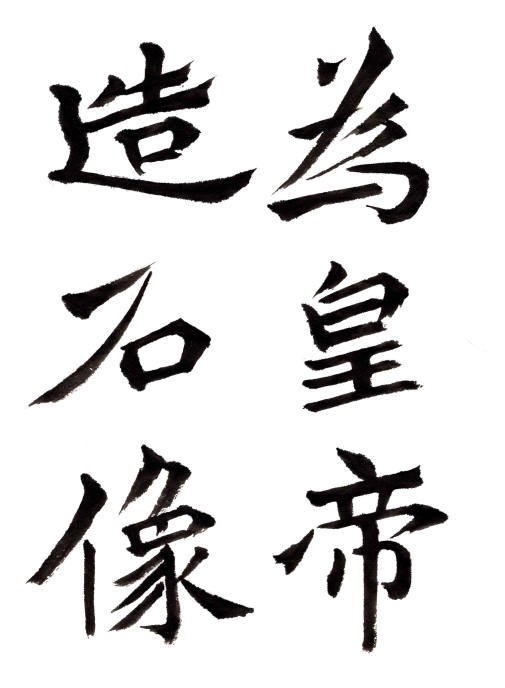 為皇帝
造石像